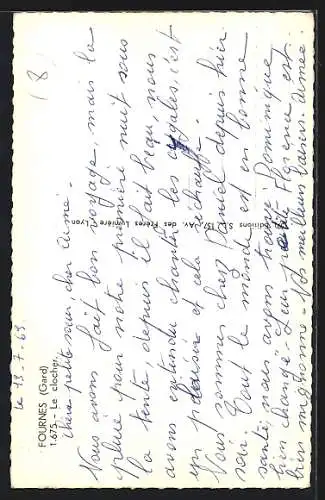 8
FOURNES (Gard)
1.675. - Le clocher.
le 15-7-69
Chère petite sœur, cher Aimé.
Nous avons fait bon voyage, mais la
pluie pour notre première nuit sous
la tente, depuis il fait beau, nous
avons entendu chanter les cygales, c'est
un plaisir et cela réchauffe.
Nous sommes chez Daniel depuis hier
soir. Tout le monde est en bonne
santé, nous avons trouvé Dominique
bien changé. Leur petite Florence est
bien mignonne. Nos meilleurs baisers. Aimée.
Editions S.L./ 157, Av. des Frères Lumière, Lyon